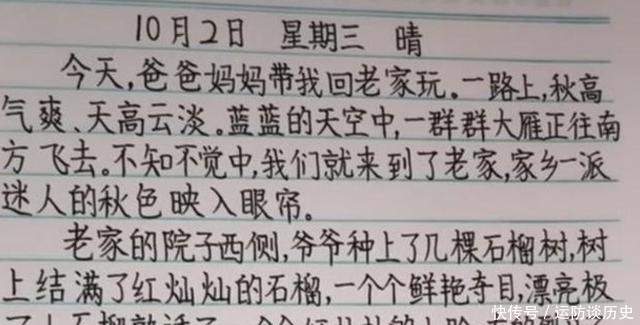 10月2日 星期三 晴
今天,爸爸妈妈带我回老家玩。一路上,秋高
气爽、天高云淡。蓝蓝的天空中,一群群大雁正往南
方飞去。不知不觉中,我们就来到了老家,家乡一派
迷人的秋色映入眼帘。
老家的院子西侧,爷爷种上了几棵石榴树,树
上结满了红灿灿的石榴,一个个鲜艳夺目,漂亮极
快传号/运防谈历史